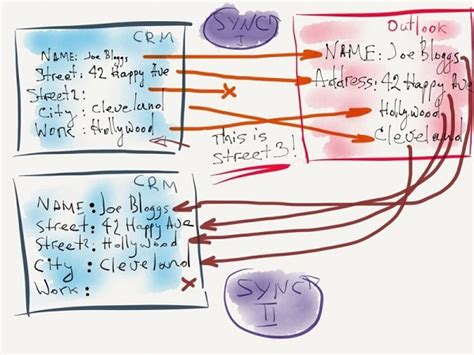 CRM
NAME: Joe Bloggs
Street: 42 Happy Ave
Street2:
City: Cleveland
Work: Hollywood
SYNC
I
Outlook
NAME: Joe Bloggs
Address: 42 Happy Ave
Hollywood
Cleveland
This is
Street3!
CRM
NAME: Joe Bloggs
Street: 42 Happy Ave
Street2: Hollywood
City: Cleveland
Work:
SYNC
II